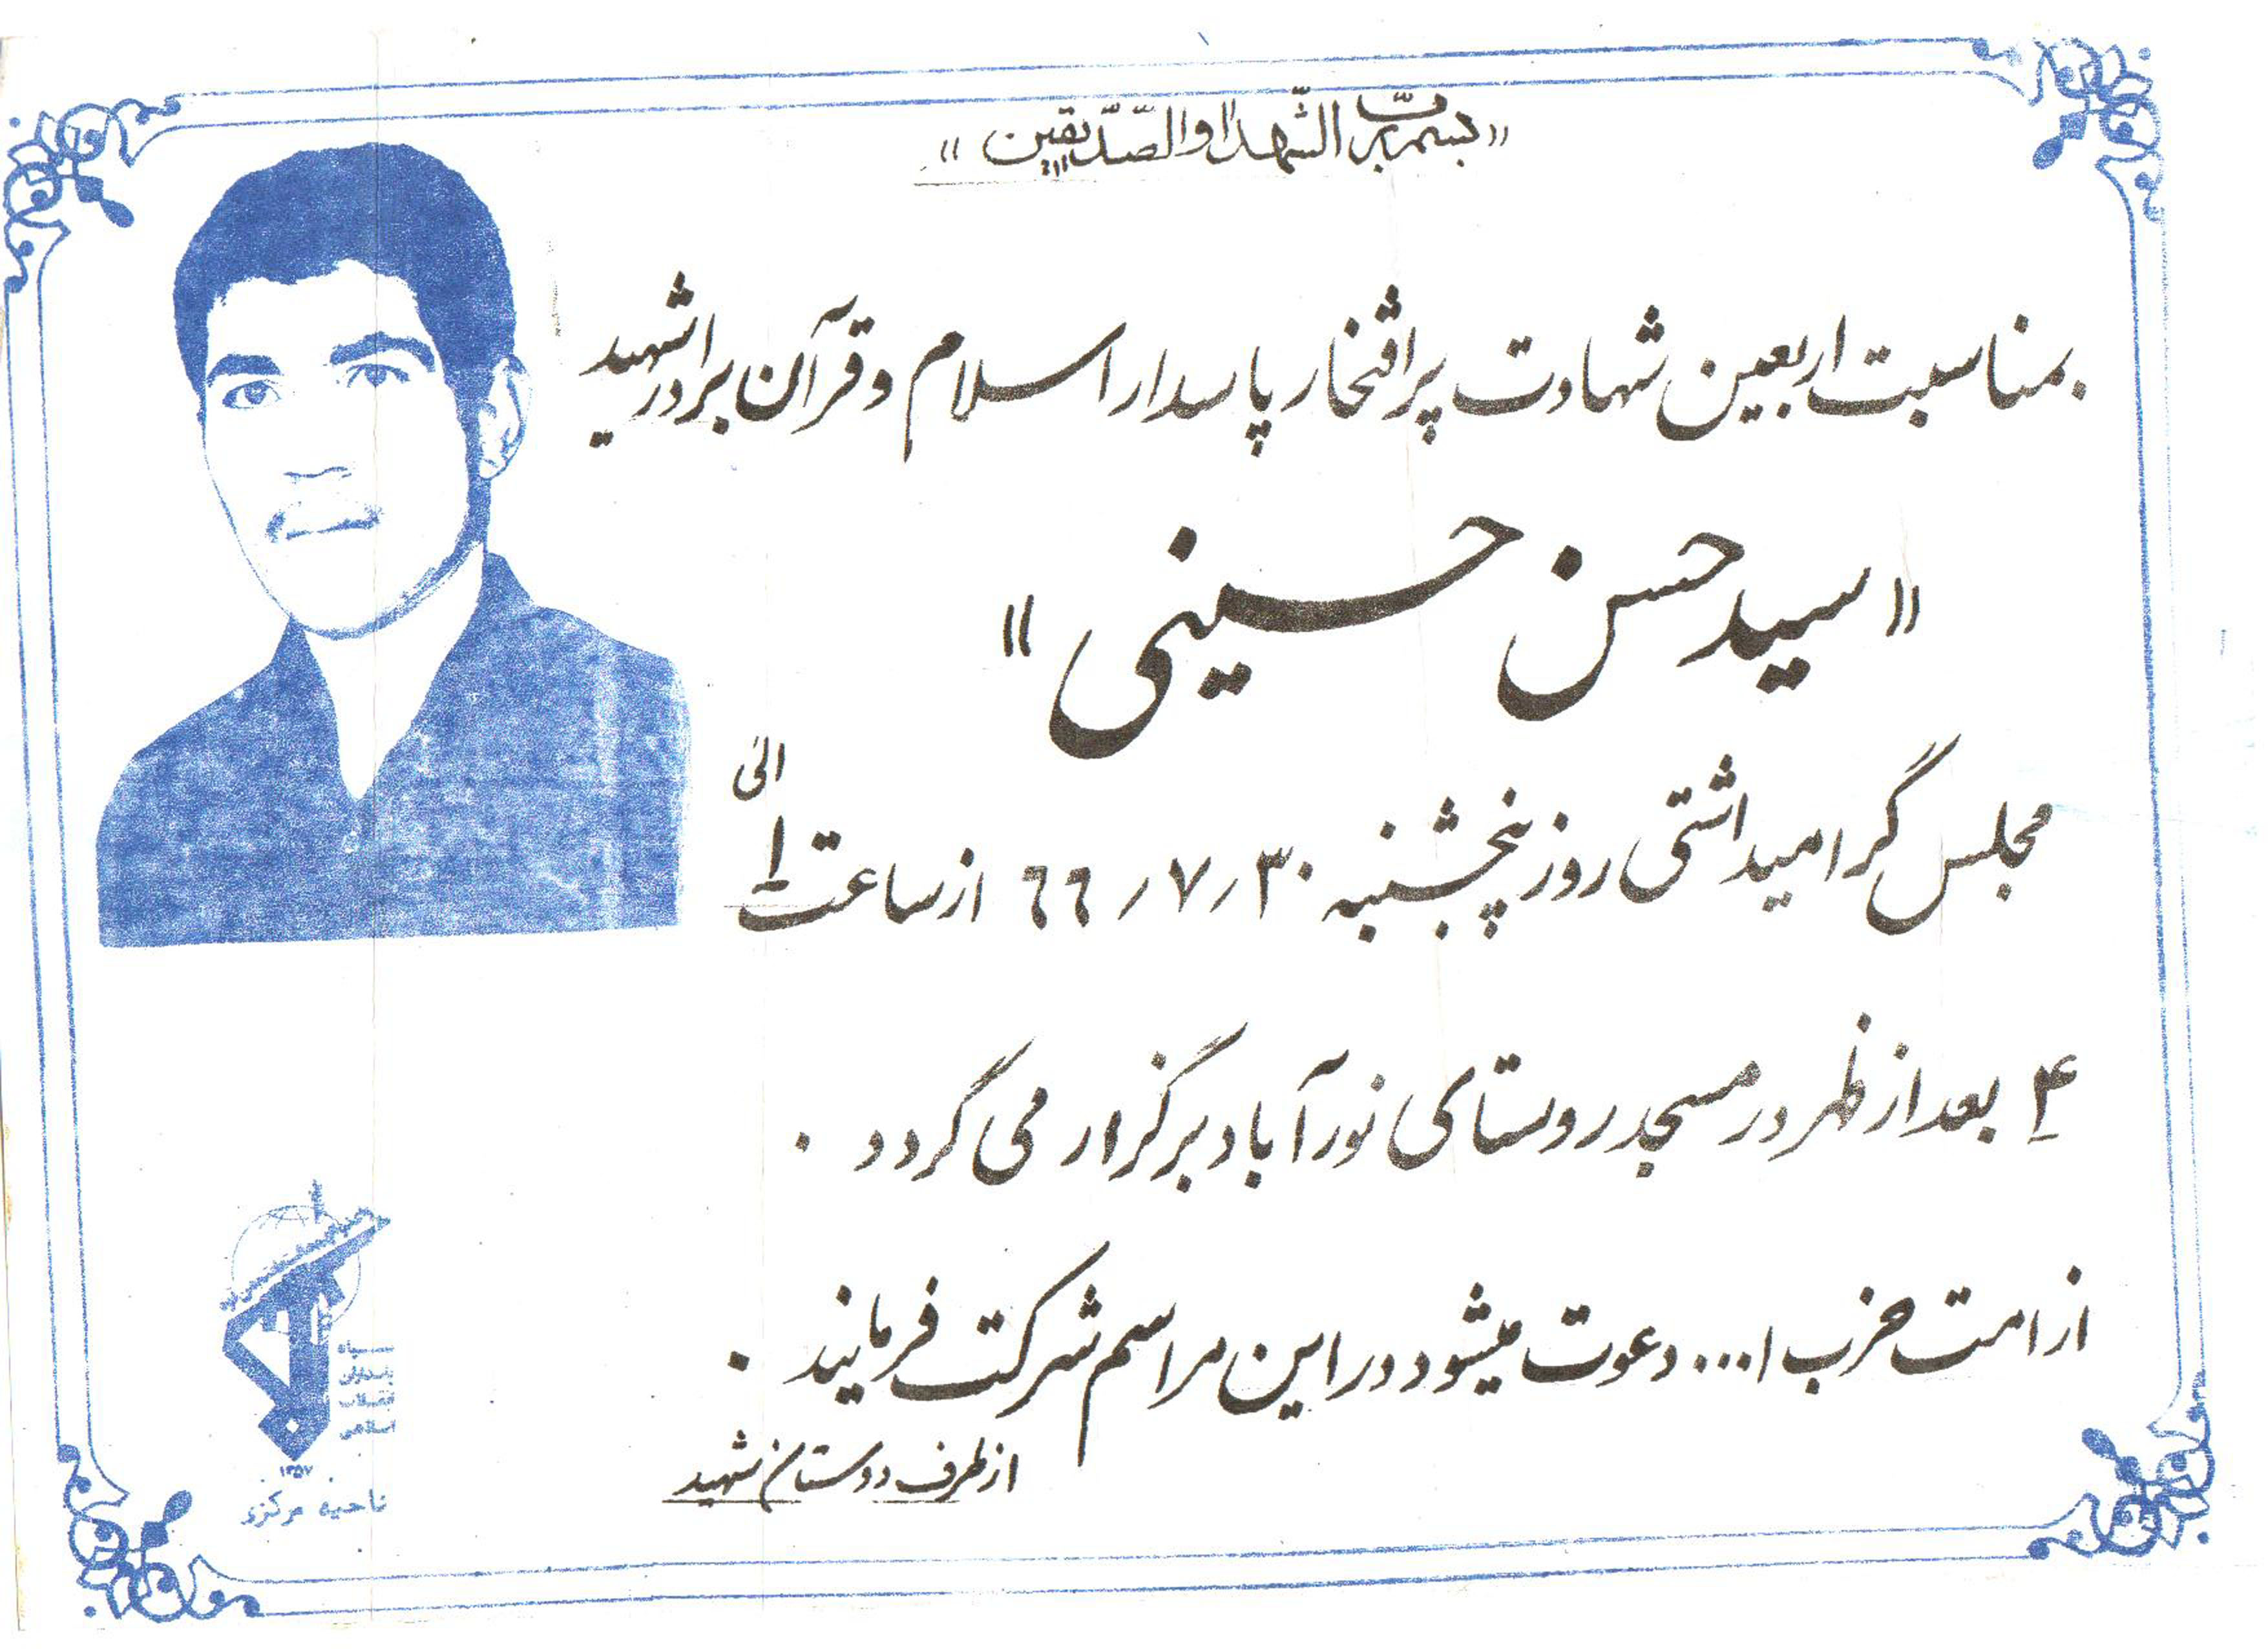 «بسم ربّ الشّهدا والصّدیقین»
بمناسبت اربعین شهادت پرافتخار پاسدار اسلام و قرآن برادر شهید
«سید حسن حسینی»
مجلس گرامیداشتی روز پنجشنبه ۶۶/۷/۳۰ از ساعت ۱ الی
۴ بعد از ظهر در مسجد روستای نورآباد برگزار می گردد.
از امت حزب ا... دعوت میشود در این مراسم شرکت فرمایند.
از طرف دوستان شهید
سپاه
پاسداران
انقلاب
اسلامی
۱۳۵۷
ناحیه مرکزی